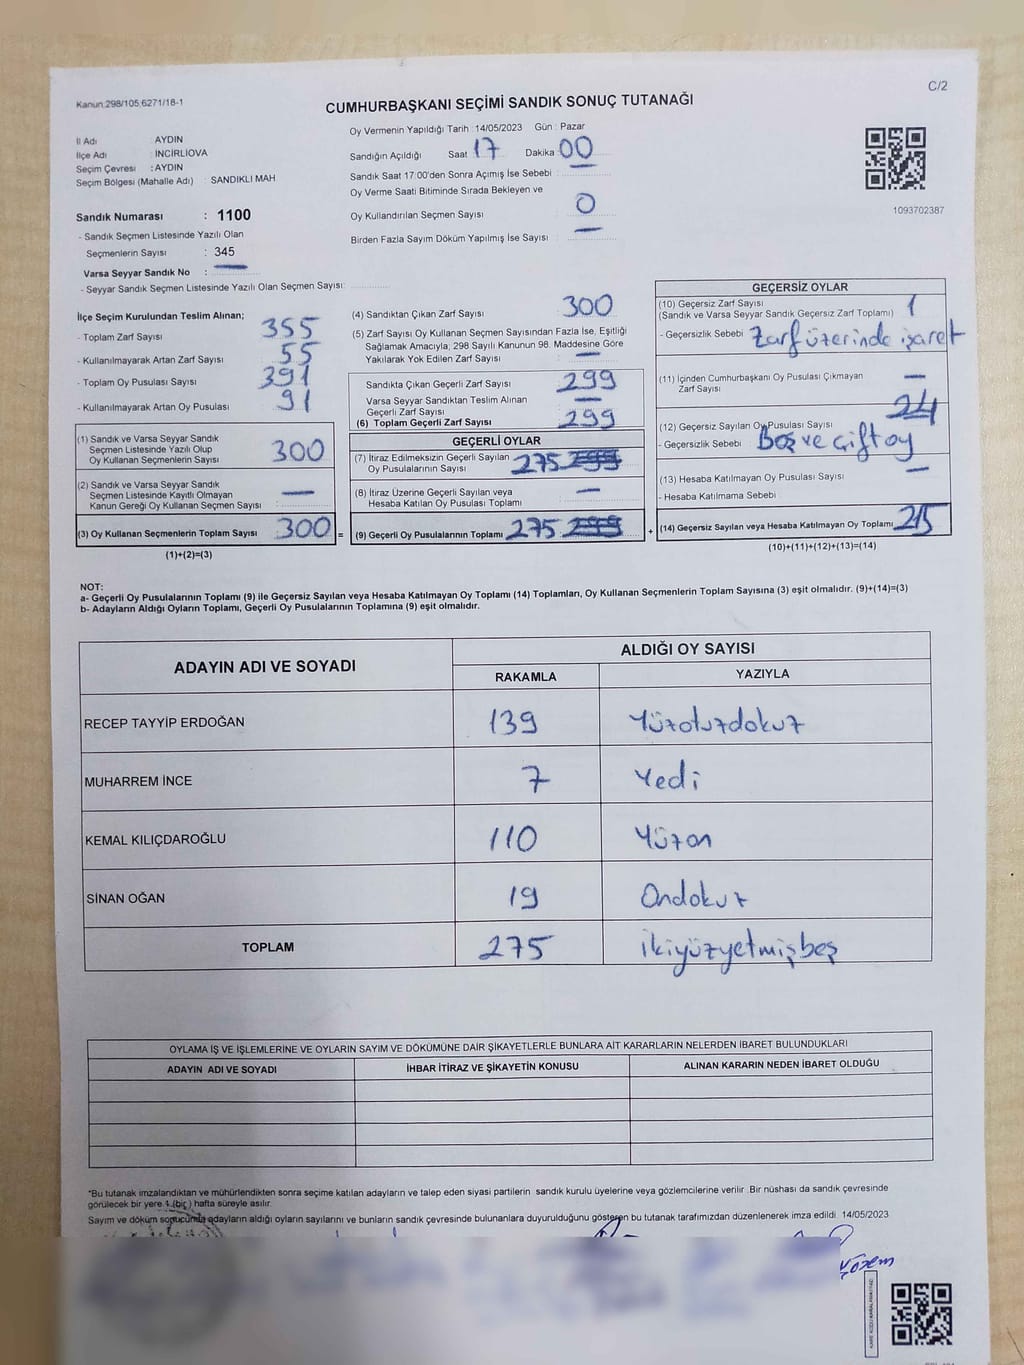 C/2
Kanun:298/105,6271/18-1
CUMHURBAŞKANI SEÇİMİ SANDIK SONUÇ TUTANAĞI
İl Adı : AYDIN
İlçe Adı : İNCİRLİOVA
Seçim Çevresi : AYDIN
Seçim Bölgesi (Mahalle Adı) : SANDIKLI MAH.
Sandık Numarası : 1100
- Sandık Seçmen Listesinde Yazılı Olan
Seçmenlerin Sayısı : 345
Varsa Seyyar Sandık No : —
- Seyyar Sandık Seçmen Listesinde Yazılı Olan Seçmen Sayısı:
Oy Vermenin Yapıldığı Tarih : 14/05/2023 Gün : Pazar
Sandığın Açıldığı Saat 17 Dakika 00
Sandık Saat 17:00'den Sonra Açımış İse Sebebi : —
Oy Verme Saati Bitiminde Sırada Bekleyen ve
Oy Kullandırılan Seçmen Sayısı : 0
Birden Fazla Sayım Döküm Yapılmış İse Sayısı : —
1093702387
İlçe Seçim Kurulundan Teslim Alınan;
- Toplam Zarf Sayısı : 355
- Kullanılmayarak Artan Zarf Sayısı : 55
- Toplam Oy Pusulası Sayısı : 391
- Kullanılmayarak Artan Oy Pusulası : 91
(1) Sandık ve Varsa Seyyar Sandık
Seçmen Listesinde Yazılı Olup
Oy Kullanan Seçmenlerin Sayısı : 300
(2) Sandık ve Varsa Seyyar Sandık
Seçmen Listesinde Kayıtlı Olmayan
Kanun Gereği Oy Kullanan Seçmen Sayısı : —
(3) Oy Kullanan Seçmenlerin Toplam Sayısı : 300 =
(1)+(2)=(3)
(4) Sandıktan Çıkan Zarf Sayısı : 300
(5) Zarf Sayısı Oy Kullanan Seçmen Sayısından Fazla İse, Eşitliği
Sağlamak Amacıyla; 298 Sayılı Kanunun 98. Maddesine Göre
Yakılarak Yok Edilen Zarf Sayısı : —
Sandıkta Çıkan Geçerli Zarf Sayısı : 299
Varsa Seyyar Sandıktan Teslim Alınan
Geçerli Zarf Sayısı : —
(6) Toplam Geçerli Zarf Sayısı : 299
GEÇERLİ OYLAR
(7) İtiraz Edilmeksizin Geçerli Sayılan
Oy Pusulalarının Sayısı : 275 299
(8) İtiraz Üzerine Geçerli Sayılan veya
Hesaba Katılan Oy Pusulası Toplamı : —
(9) Geçerli Oy Pusulalarının Toplamı : 275 299 +
GEÇERSİZ OYLAR
(10) Geçersiz Zarf Sayısı
(Sandık ve Varsa Seyyar Sandık Geçersiz Zarf Toplamı) : 1
- Geçersizlik Sebebi : Zarf üzerinde işaret
(11) İçinden Cumhurbaşkanı Oy Pusulası Çıkmayan
Zarf Sayısı : —
(12) Geçersiz Sayılan Oy Pusulası Sayısı : 24
- Geçersizlik Sebebi : Boş ve Çift oy
(13) Hesaba Katılmayan Oy Pusulası Sayısı : —
- Hesaba Katılmama Sebebi :
(14) Geçersiz Sayılan veya Hesaba Katılmayan Oy Toplamı : 25
(10)+(11)+(12)+(13)=(14)
NOT:
a- Geçerli Oy Pusulalarının Toplamı (9) ile Geçersiz Sayılan veya Hesaba Katılmayan Oy Toplamı (14) Toplamları, Oy Kullanan Seçmenlerin Toplam Sayısına (3) eşit olmalıdır. (9)+(14)=(3)
b- Adayların Aldığı Oyların Toplamı, Geçerli Oy Pusulalarının Toplamına (9) eşit olmalıdır.
ADAYIN ADI VE SOYADI ALDIĞI OY SAYISI
RAKAMLA YAZIYLA
RECEP TAYYİP ERDOĞAN 139 Yüzotuzdokuz
MUHARREM İNCE 7 Yedi
KEMAL KILIÇDAROĞLU 110 Yüzon
SİNAN OĞAN 19 Ondokuz
TOPLAM 275 ikiyüzyetmişbeş
OYLAMA İŞ VE İŞLEMLERİNE VE OYLARIN SAYIM VE DÖKÜMÜNE DAİR ŞİKAYETLERLE BUNLARA AİT KARARLARIN NELERDEN İBARET BULUNDUKLARI
ADAYIN ADI VE SOYADI İHBAR İTİRAZ VE ŞİKAYETİN KONUSU ALINAN KARARIN NEDEN İBARET OLDUĞU
*Bu tutanak imzalandıktan ve mühürlendikten sonra seçime katılan adayların ve talep eden siyasi partilerin sandık kurulu üyelerine veya gözlemcilerine verilir .Bir nüshası da sandık çevresinde
görülecek bir yere 1 (bir) hafta süreyle asılır.
Sayım ve döküm sonucunda adayların aldığı oyların sayılarını ve bunların sandık çevresinde bulunanlara duyurulduğunu gösteren bu tutanak tarafımızdan düzenlenerek imza edildi. 14/05/2023